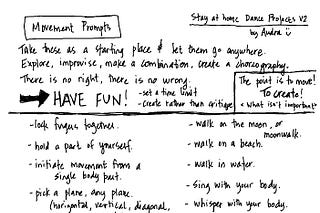 Movement Prompts
Stay at home Dance Projects V2
by Audra
Take these as a starting place & let them go anywhere.
Explore, improvise, make a combination, create a choreography.
There is no right, there is no wrong.
HAVE FUN!
-set a time limit
-create rather than critique
The point is to move!
To create!
what isn't important
-lock fingers together.
- hold a part of yourself.
- initiate movement from a
single body part.
- pick a plane, any plane.
(horizontal, vertical, diagonal,
- walk on the moon, or
moonwalk.
- walk on a beach.
- walk in water.
-sing with your body.
- whisper with your body.